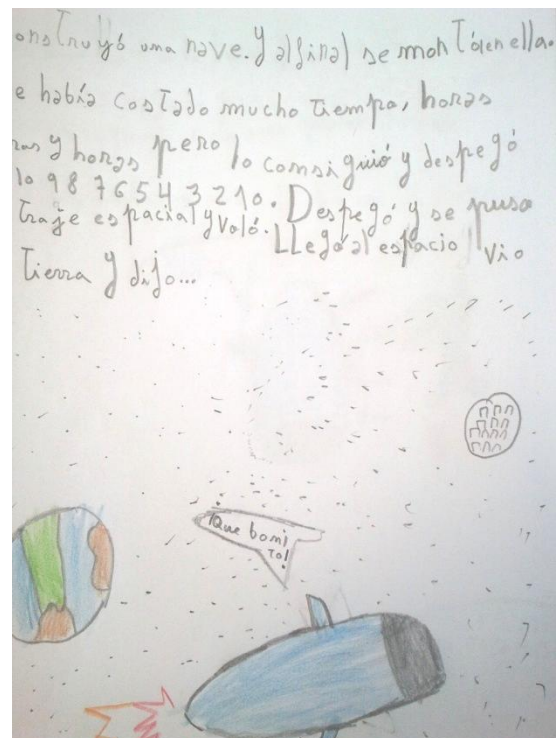 onstruyó una nave. Y al final se montó en ella.
e había costado mucho tiempo, horas
ras y horas pero lo consiguió y despegó
10 9 8 7 6 5 4 3 2 1 0. Despegó y se puso
traje espacial y voló. LLegó al espacio vio
Tierra y dijo...
¡Que boni
to!